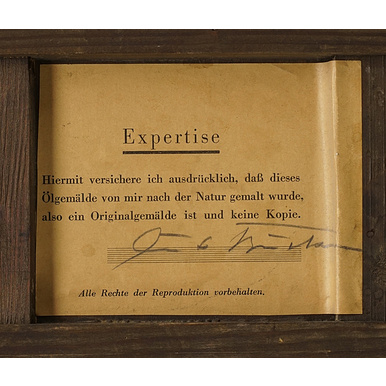 Expertise
Hiermit versichere ich ausdrücklich, daß dieses
Ölgemälde von mir nach der Natur gemalt wurde,
also ein Originalgemälde ist und keine Kopie.
Alle Rechte der Reproduktion vorbehalten.